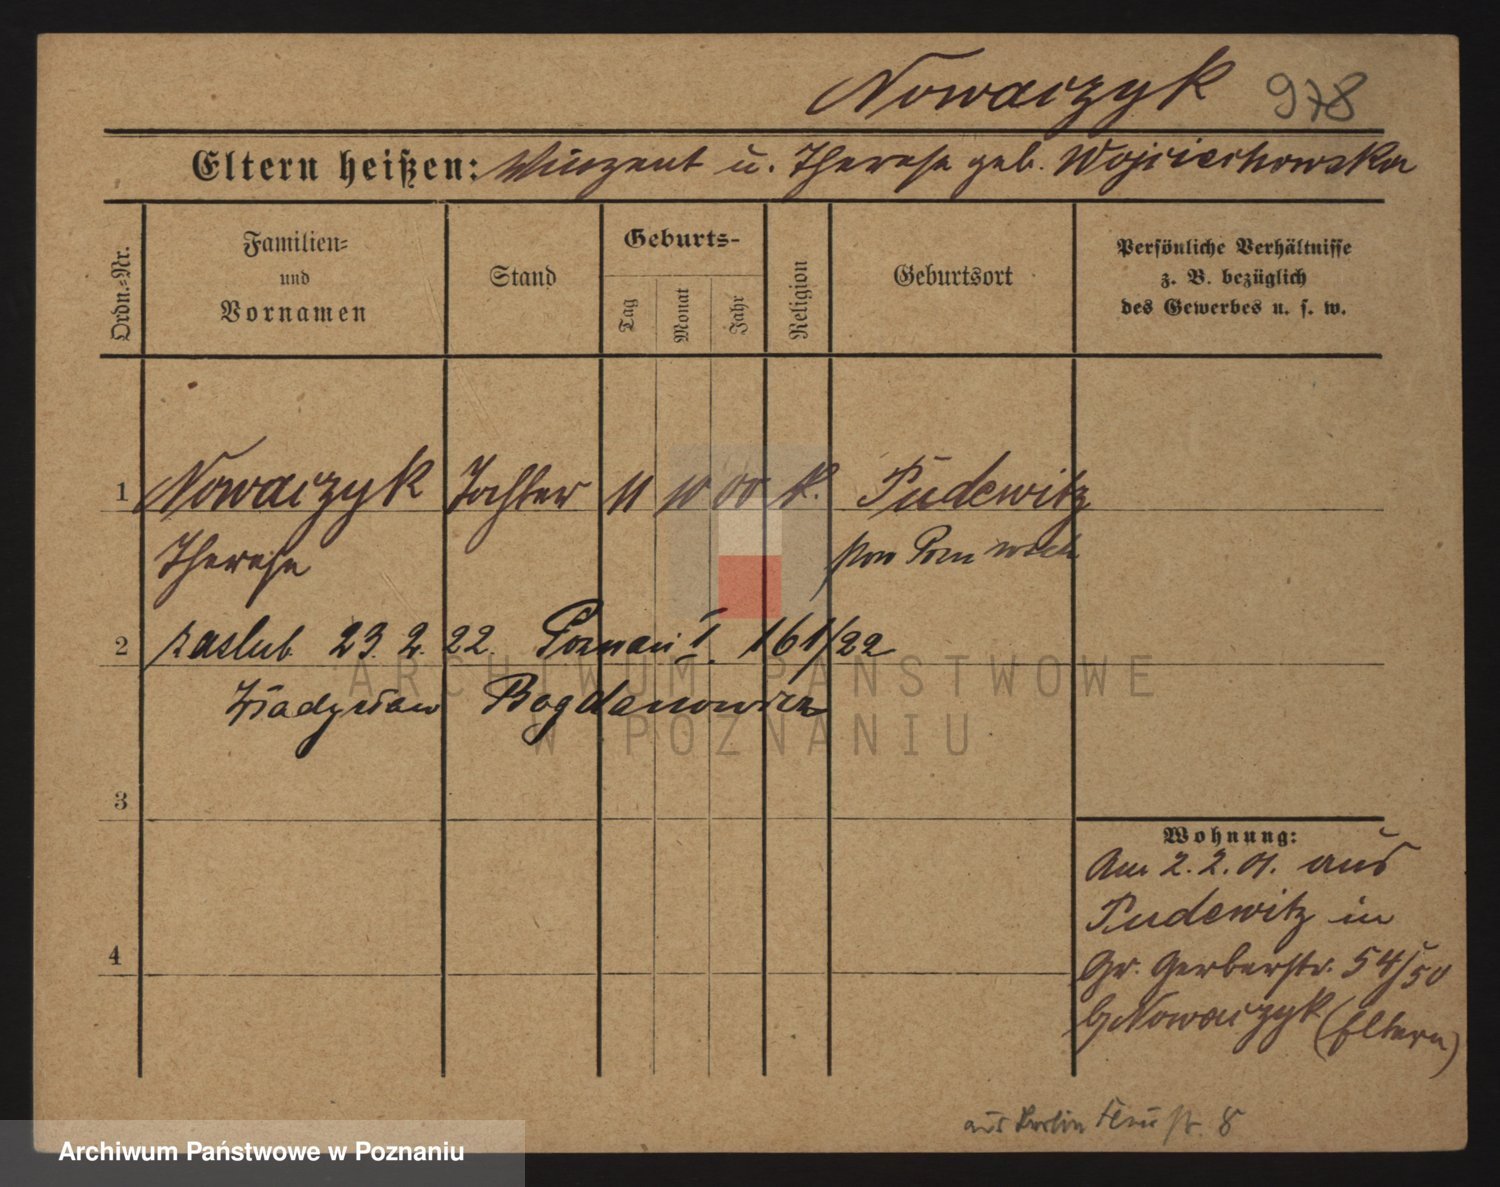 Nowaczyk 978
Eltern heißen: Vinzent u. Therese geb. Wojciechowska
Ordn.-Nr.
Familien-
und
Vornamen
Stand
Geburts-
Tag
Monat
Jahr
Religion
Geburtsort
Persönliche Verhältnisse
z. B. bezüglich
des Gewerbes u. s. w.
1 Nowaczyk Tochter 11 10 00 k. Pudewitz
Therese
2 zaslub. 23. 2. 22. Poznań I. 161/22
Władysław Bogdanowicz
3
Wohnung:
Am 2.2.01. aus
Pudewitz in
4
Gr. Gerberstr. 54/50
b/Nowaczyk (Eltern)
aus Berlin str. 8
ARCHIWUM PAŃSTWOWE
W POZNANIU
Archiwum Państwowe w Poznaniu